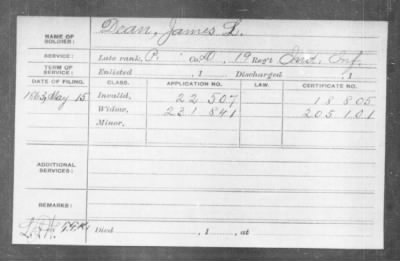 NAME OF SOLDIER: Dean, James L.
SERVICE: Late rank, P. Co. D, 19 Reg't Ind. Inf.
TERM OF SERVICE: Enlisted , 1 Discharged , 1
DATE OF FILING. CLASS. APPLICATION NO. LAW. CERTIFICATE NO.
1863, May 15 Invalid, 22 507 18 805
Widow, 231 841 205 101
Minor,
ADDITIONAL SERVICES:
REMARKS:
Died , 1 , at